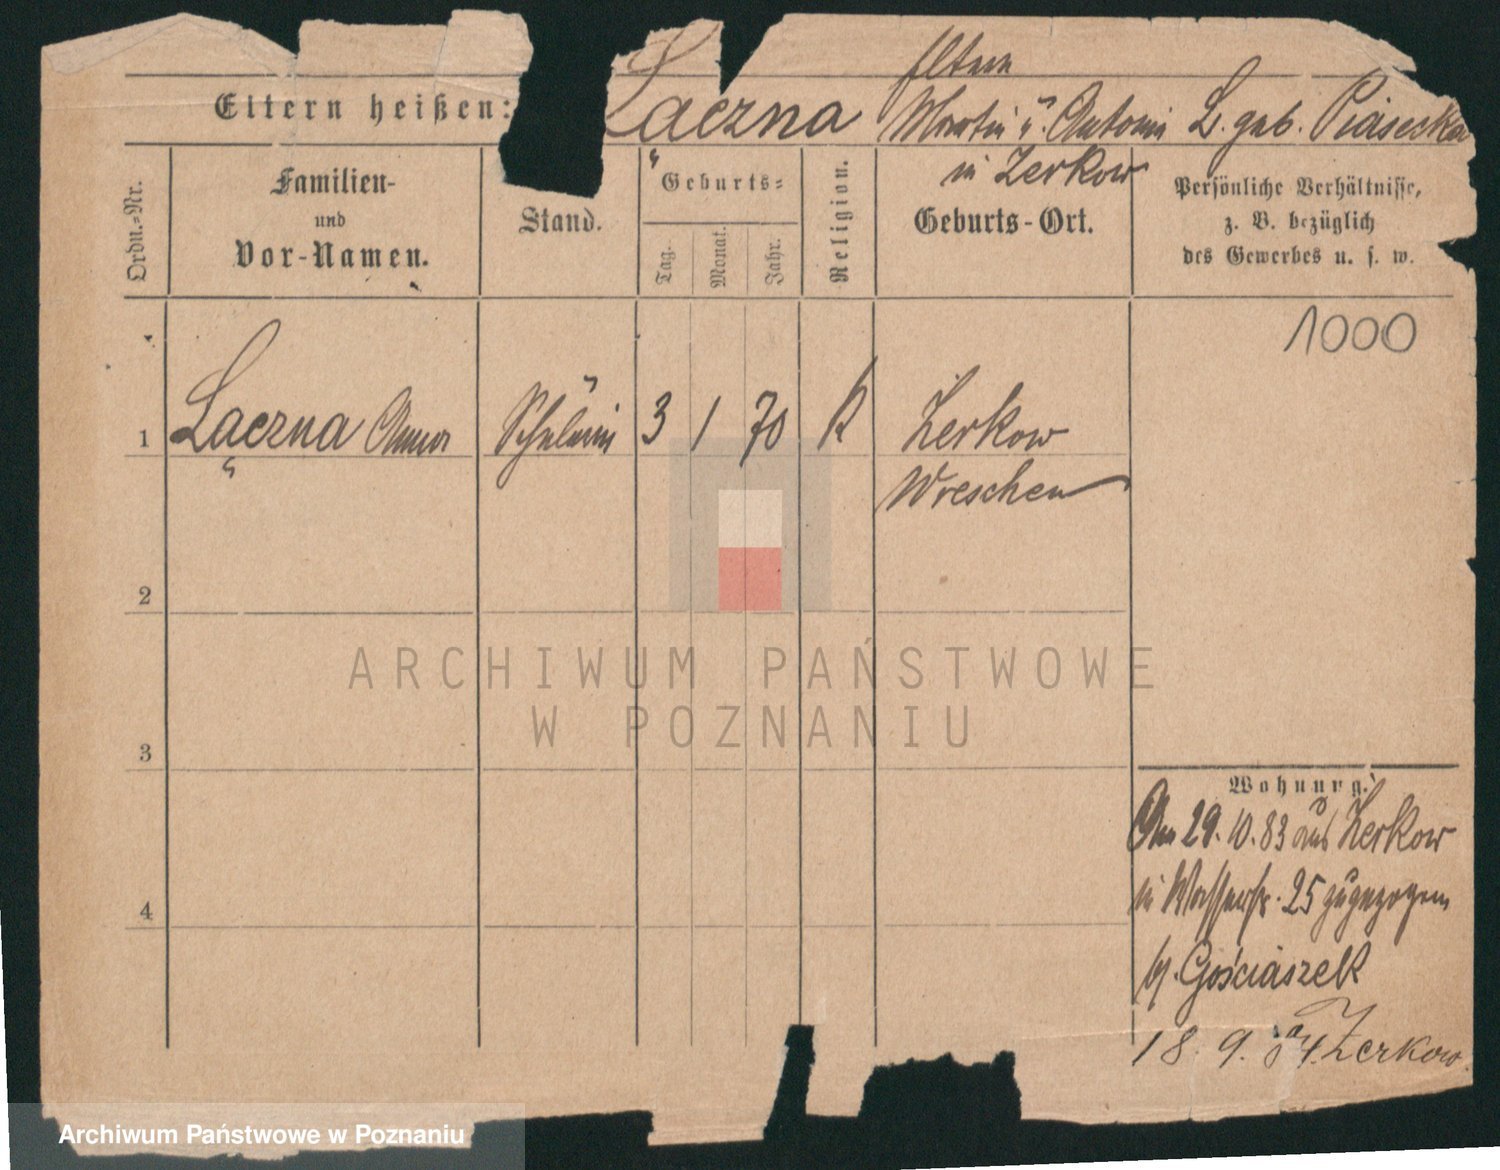 Eltern
Eltern heißen: Łączna Martin u. Antonie Ł. geb. Piasecka
in Zerkow
Ordn.-Nr.
Familien-
und
Vor-Namen.
Stand.
Geburts-
Tag.
Monat.
Jahr.
Religion.
Geburts-Ort.
Persönliche Verhältnisse,
z. B. bezüglich
des Gewerbes u. s. w.
1000
1 Łączna Anna Schülerin 3 1 70 K Zerkow
Wreschen
2
3
4
ARCHIWUM PAŃSTWOWE
W POZNANIU
Wohnung.
Am 29.10.83 aus Zerkow
in Wasserstr. 25 zugezogen
b/. Gościaszek
18. 9. 84. Zerkow
Archiwum Państwowe w Poznaniu